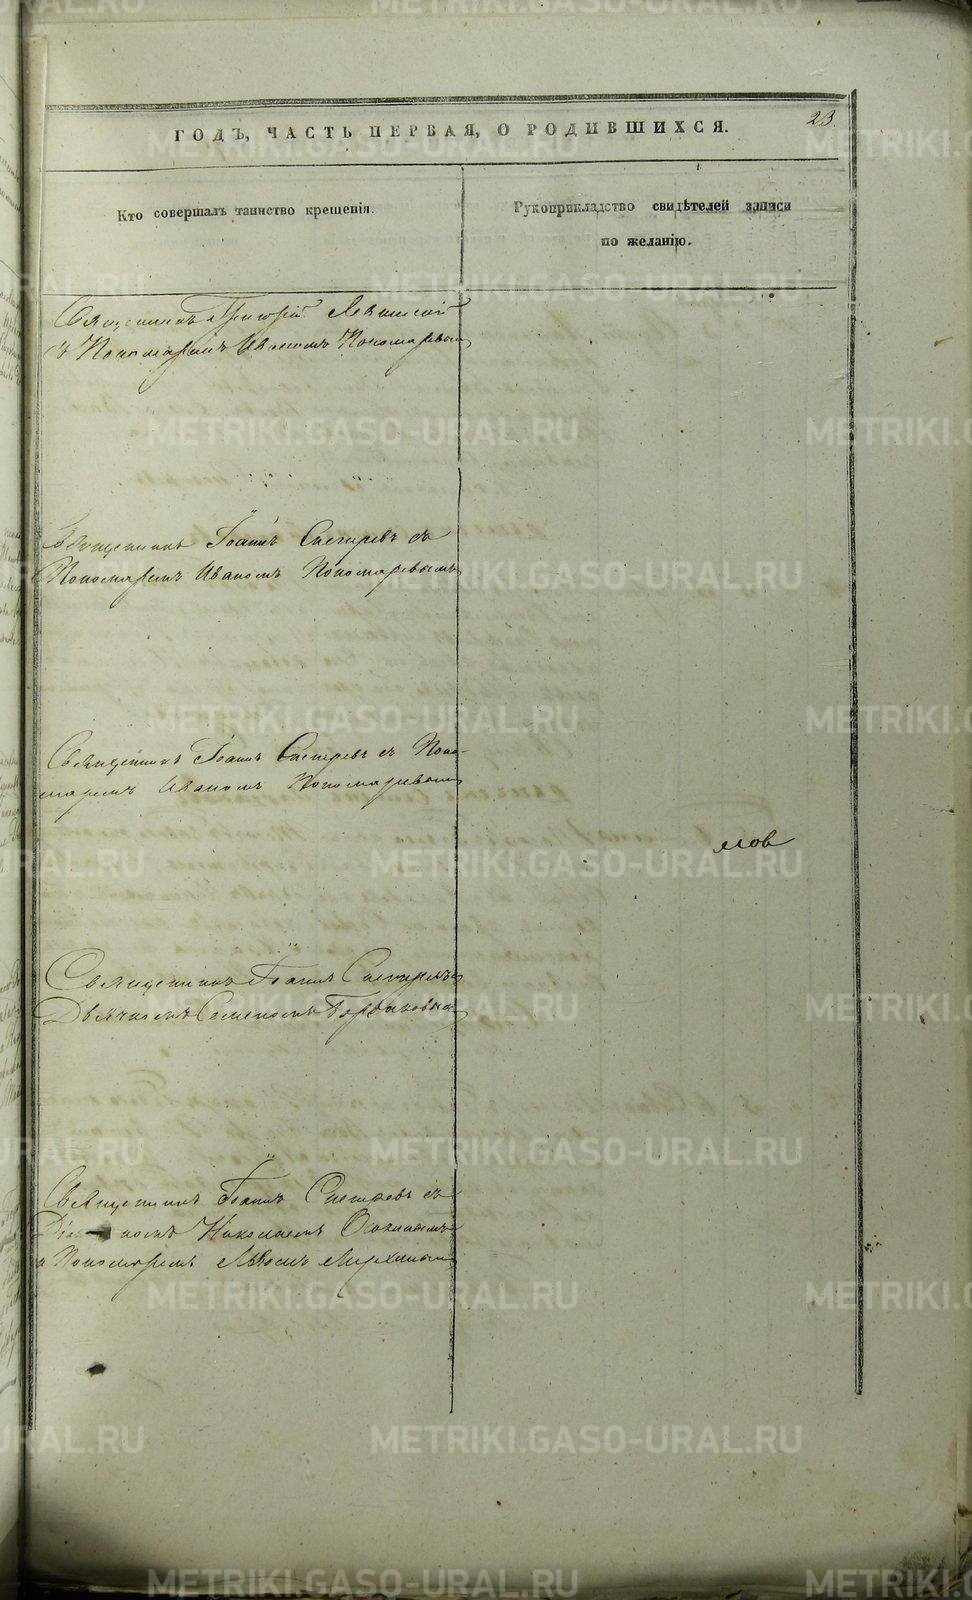 23
ГОДЪ, ЧАСТЬ ПЕРВАЯ, О РОДИВШИХСЯ.
Кто совершалъ таинство крещенія.
Рукоприкладство свидѣтелей записи
по желанію.
Священникъ Григорій
съ Пономаремъ Иваномъ Пономаревымъ
Священникъ Іоаннъ Снегиревъ съ
Пономаремъ Иваномъ Пономаревымъ
Священникъ Іоаннъ Снегиревъ съ Поно-
маремъ Иваномъ Пономаревымъ
мов
Священникъ Іоаннъ Снегиревъ съ
Дьячкомъ Семеномъ Горбуновымъ
Священникъ Іоаннъ Снегиревъ съ
Николаемъ
и Пономаремъ
METRIKI.GASO-URAL.RU